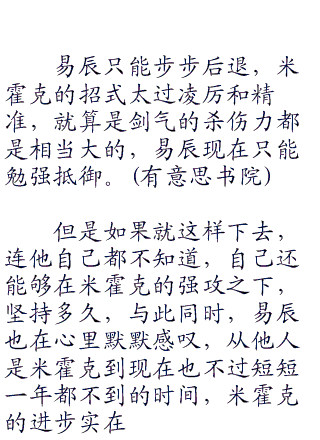 易辰只能步步后退，米
霍克的招式太过凌厉和精
准，就算是剑气的杀伤力都
是相当大的，易辰现在只能
勉强抵御。(有意思书院)
但是如果就这样下去，
连他自己都不知道，自己还
能够在米霍克的强攻之下，
坚持多久，与此同时，易辰
也在心里默默感叹，从他人
是米霍克到现在也不过短短
一年都不到的时间，米霍克
的进步实在